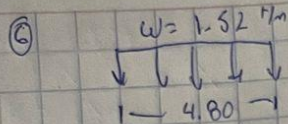 ⑥ W = 1.52 T/m
1 — 4.80 — 1